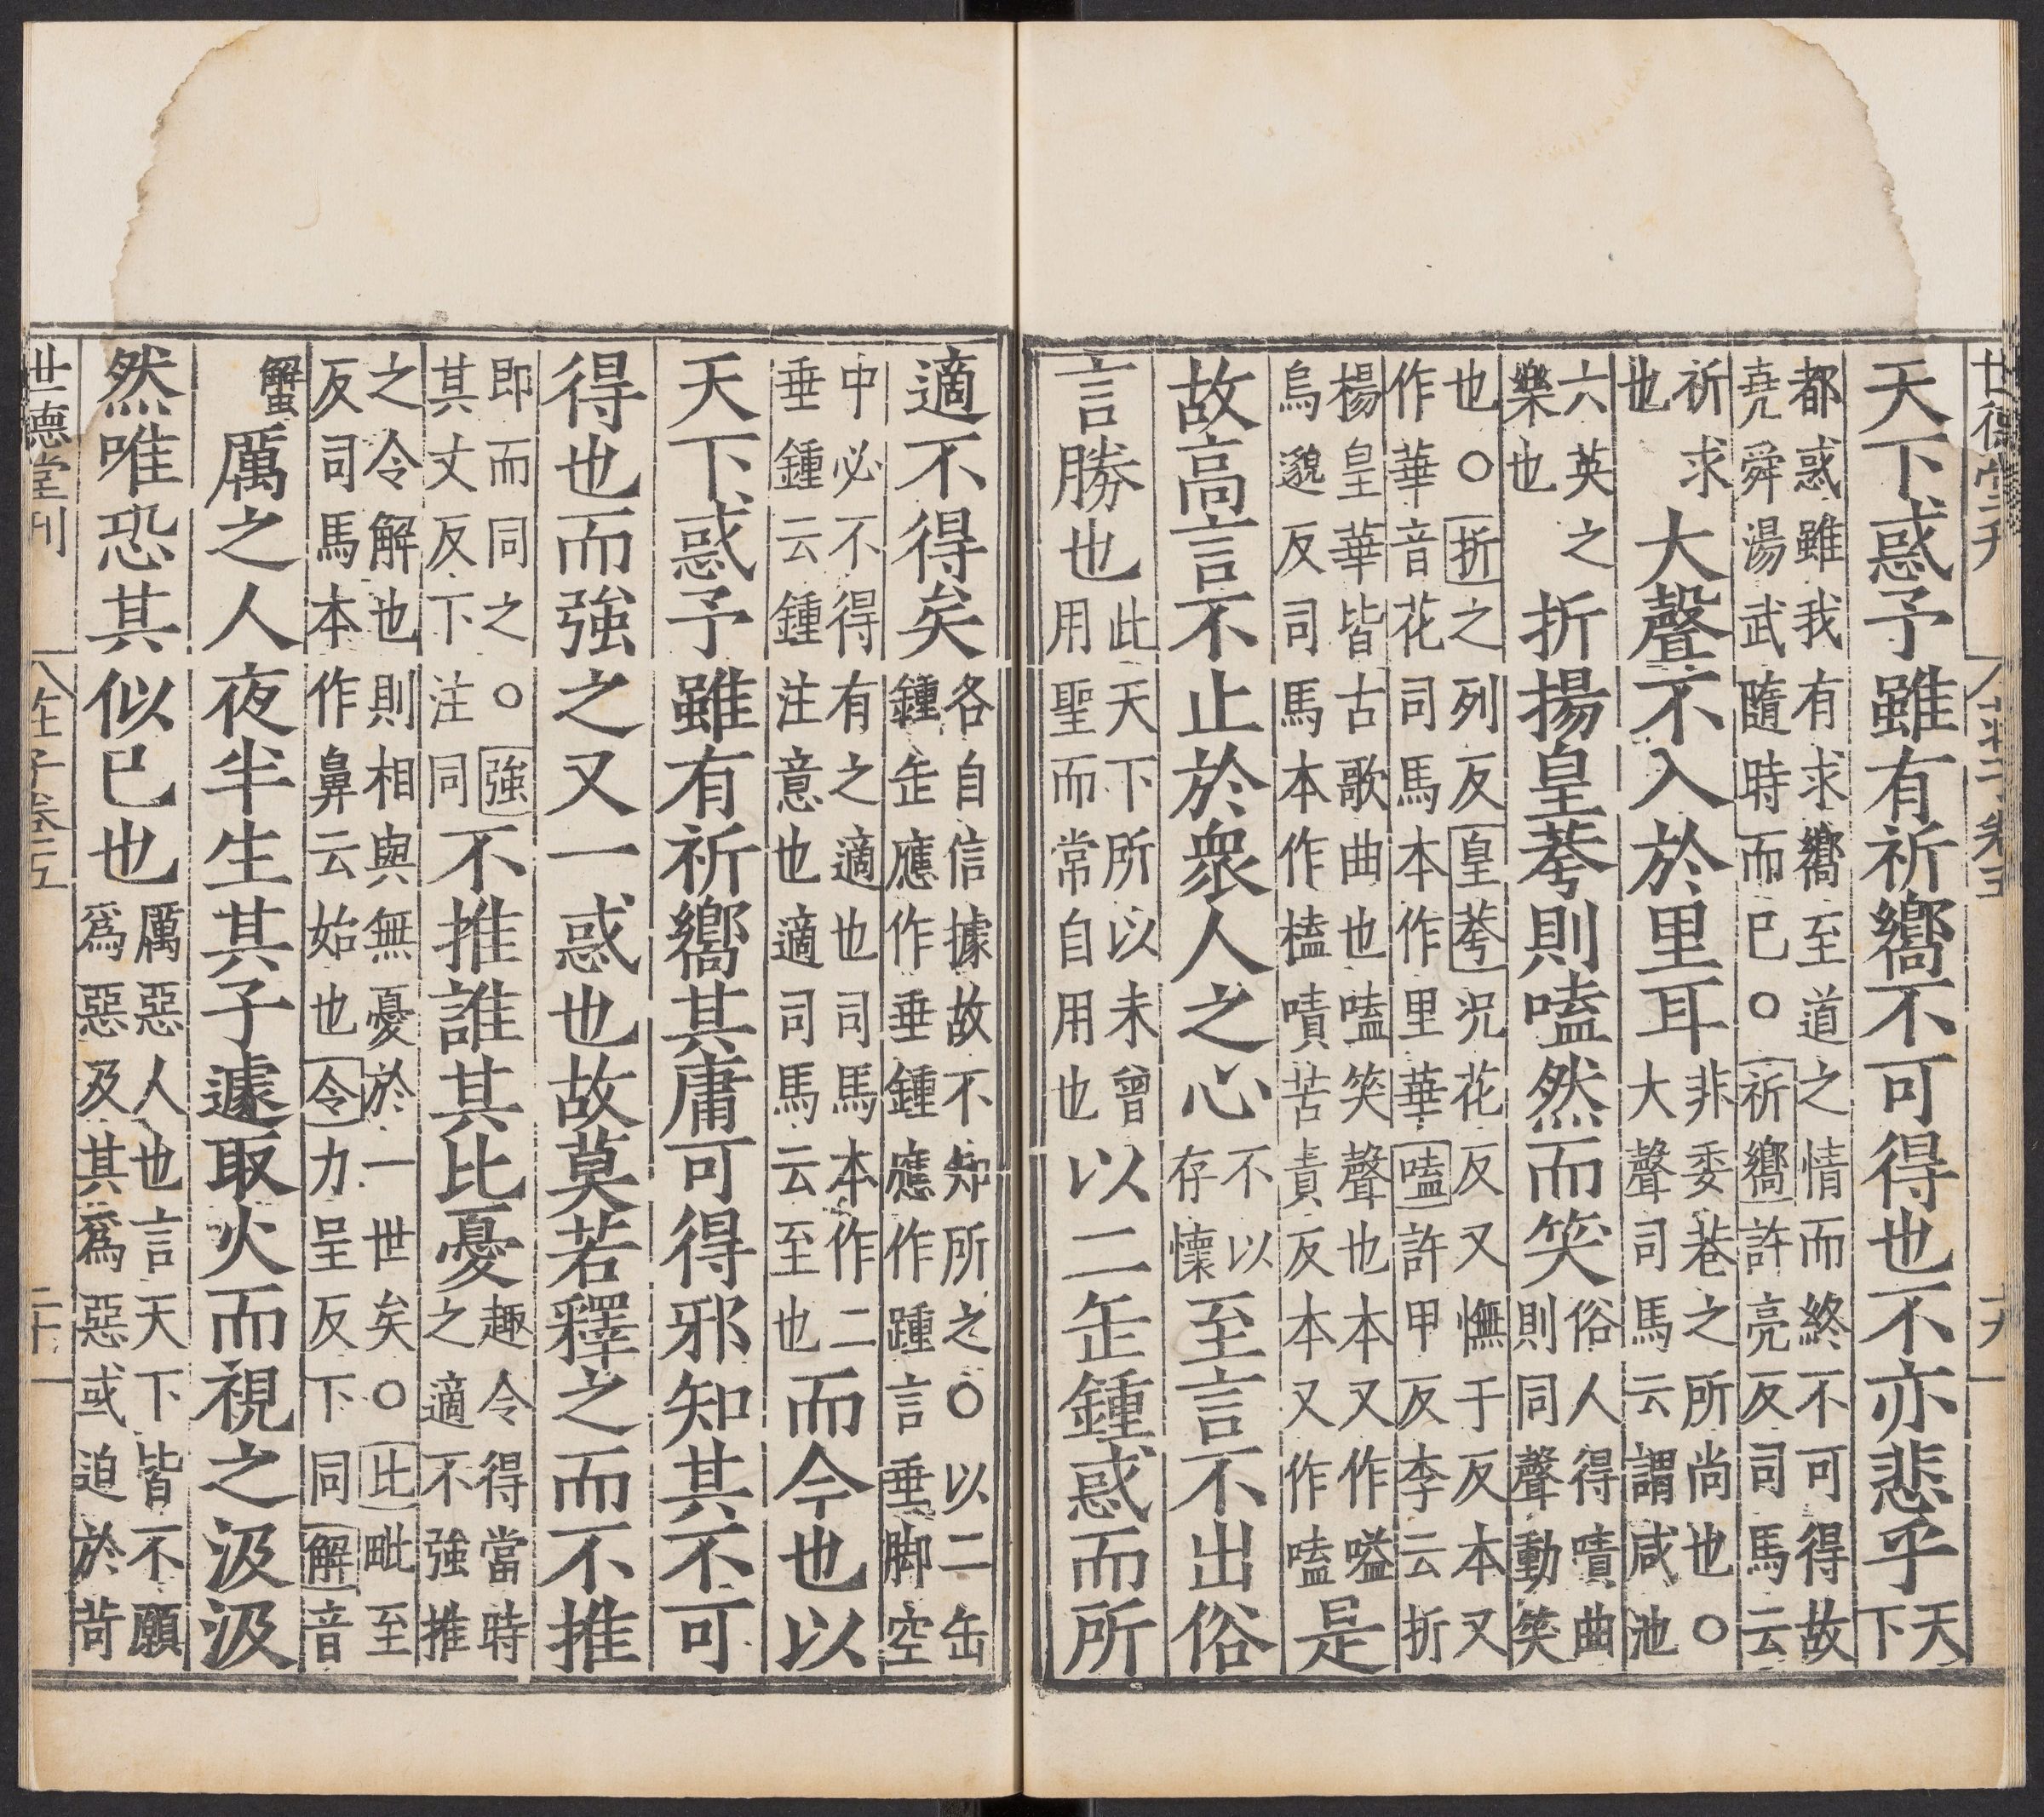 世德堂刊 莊子卷五
天下惑予雖有祈嚮不可得也不亦悲乎天下
都惑雖我有求嚮至道之情而終不可得故
堯舜湯武隨時而已○祈嚮許亮反司馬云
祈求也大聲不入於里耳非委巷之所尚也○大聲司馬云謂咸池
六英之樂也折揚皇荂則嗑然而笑俗人得嘖曲則同聲動笑
也○折之列反皇荂况花反又憮于反本又
作華音花司馬本作里華嗑許甲反李云折
楊皇華皆古歌曲也嗑笑聲也本又作嗌
烏邈反司馬本作榼嘖苦責反本又作嗑是
故高言不止於衆人之心不以存懷至言不出俗
言勝也此天下所以未曾用聖而常自用也以二缶鍾惑而所
適不得矣各自信據故不知所之○以二缶鍾缶應作垂鍾應作踵言垂脚空
中必不得有之適也司馬本作二垂鍾云鍾注意也適司馬云至也而今也以
天下惑予雖有祈嚮其庸可得邪知其不可
得也而強之又一惑也故莫若釋之而不推
即而同之○強其丈反下注同不推誰其比憂趣令得當時之適不強推
之令解也則相與無憂於一世矣○比毗至
反司馬本作鼻云始也令力呈反下同解音
蟹厲之人夜半生其子遽取火而視之汲汲
然唯恐其似已也厲惡人也言天下皆不願爲惡及其爲惡或迫於苛
世德堂刊 莊子卷五 二十一